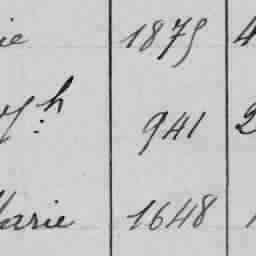 ie 1875 4
ph 941 2
Marie 1648